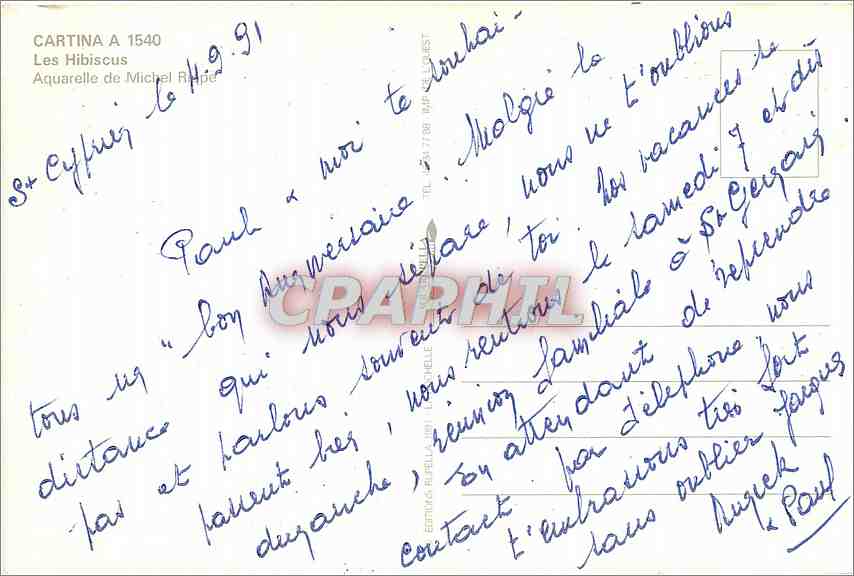 CARTINA A 1540
Les Hibiscus
Aquarelle de Michel
St Cyprien le 4.9.91
Paul & moi te souhai-
tous un "bon anniversaire". Malgré la
distance qui nous sépare, nous ne t'oublions
pas et parlons souvent de toi. Nos vacances se
passent bien, nous rentrons le samedi 7 et dès
dimanche, réunion familiale à St Gervais.
En attendant de reprendre
contact par téléphone, nous
t'embrassons très fort
sans oublier Jacques
Annick
& Paul
EDITIONS RUPELLA
CPAPHIL